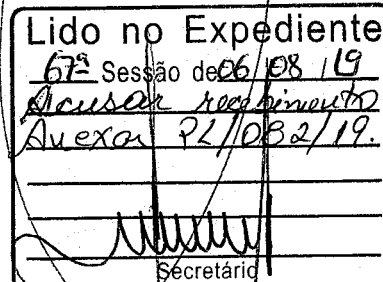 Lido no Expediente
67ª Sessão de 06/08/19
Acusar recebimento
Anexar PL/082/19.
Secretário